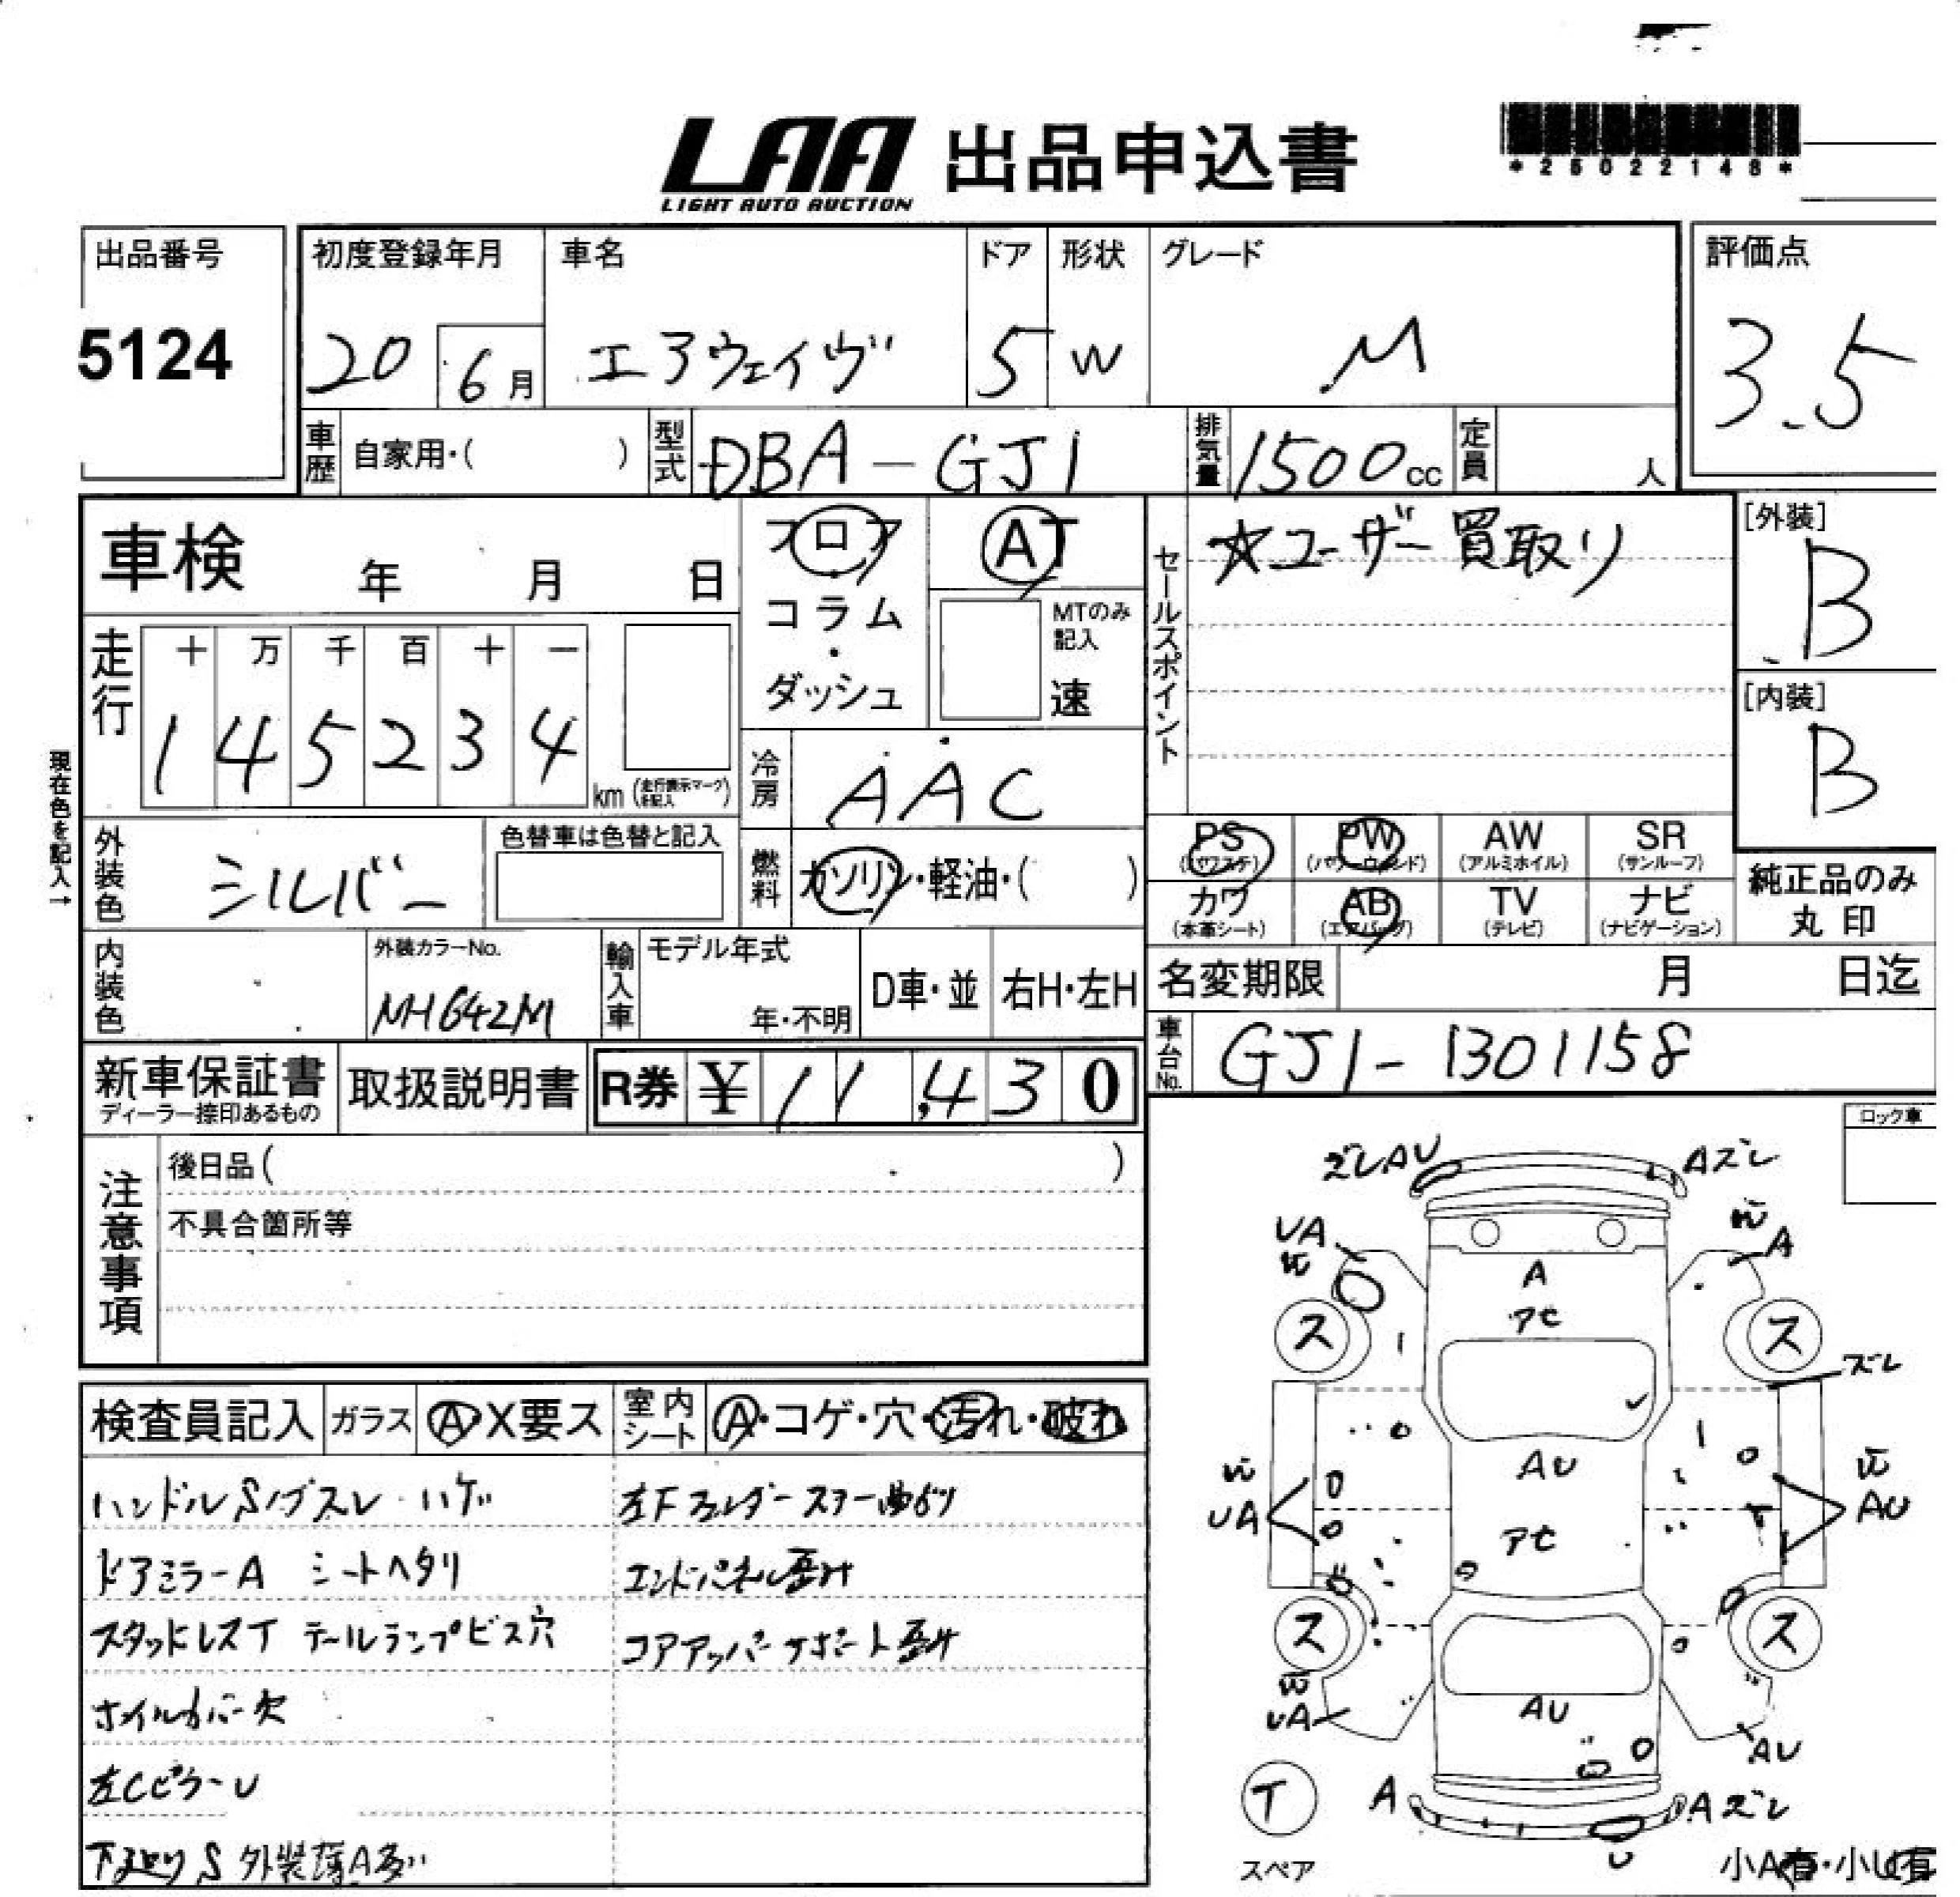 LAA 出品申込書
LIGHT AUTO AUCTION
*25022148*
出品番号
5124
初度登録年月 車名 ドア 形状 グレード
20 6月 エアウェイヴ 5 W M
評価点
3.5
車歴 自家用・( ) 型式 DBA-GJ1 排気量 1500cc 定員 人
車検 年 月 日
フロア・コラム・ダッシュ
AT
MTのみ記入
速
セールスポイント
☆ユーザー買取り
[外装]
B
[内装]
B
走行
十 万 千 百 十 一
1 4 5 2 3 4 km (走行表示マークを記入)
現在色を記入→
冷房 AAC
外装色 シルバー
色替車は色替と記入
燃料 ガソリン・軽油・( )
PS (パワステ) PW (パワーウィンド) AW (アルミホイル) SR (サンルーフ)
カワ (本革シート) AB (エアバッグ) TV (テレビ) ナビ (ナビゲーション)
純正品のみ丸印
内装色
外装カラーNo.
NH642M
輸入車 モデル年式 年・不明 D車・並 右H・左H
名変期限 月 日迄
車台No. GJ1-1301158
新車保証書
ディーラー捺印あるもの
取扱説明書
R券 ¥11,430
注意事項
後日品( )
不具合箇所等
ロック車
検査員記入 ガラス A X要ス 室内シート A・コゲ・穴・汚れ・破れ
ハンドルSノブスレ・ハゲ
ドアミラーA シートヘタリ
スタッドレスT テールランプビス穴
ホイルカバー欠
左CピラーU
下廻りS 外装薄A多い
左Fフェンダーステー曲がり
エンドパネル歪み
コアアッパーサポート歪み
ズレAU
Aズレ
UA
A
A
アセ
ス
ス
ズレ
AU
UA
AU
アセ
ス
ス
UA
AU
AU
T
スペア
A
Aズレ
U
小A有・小U有